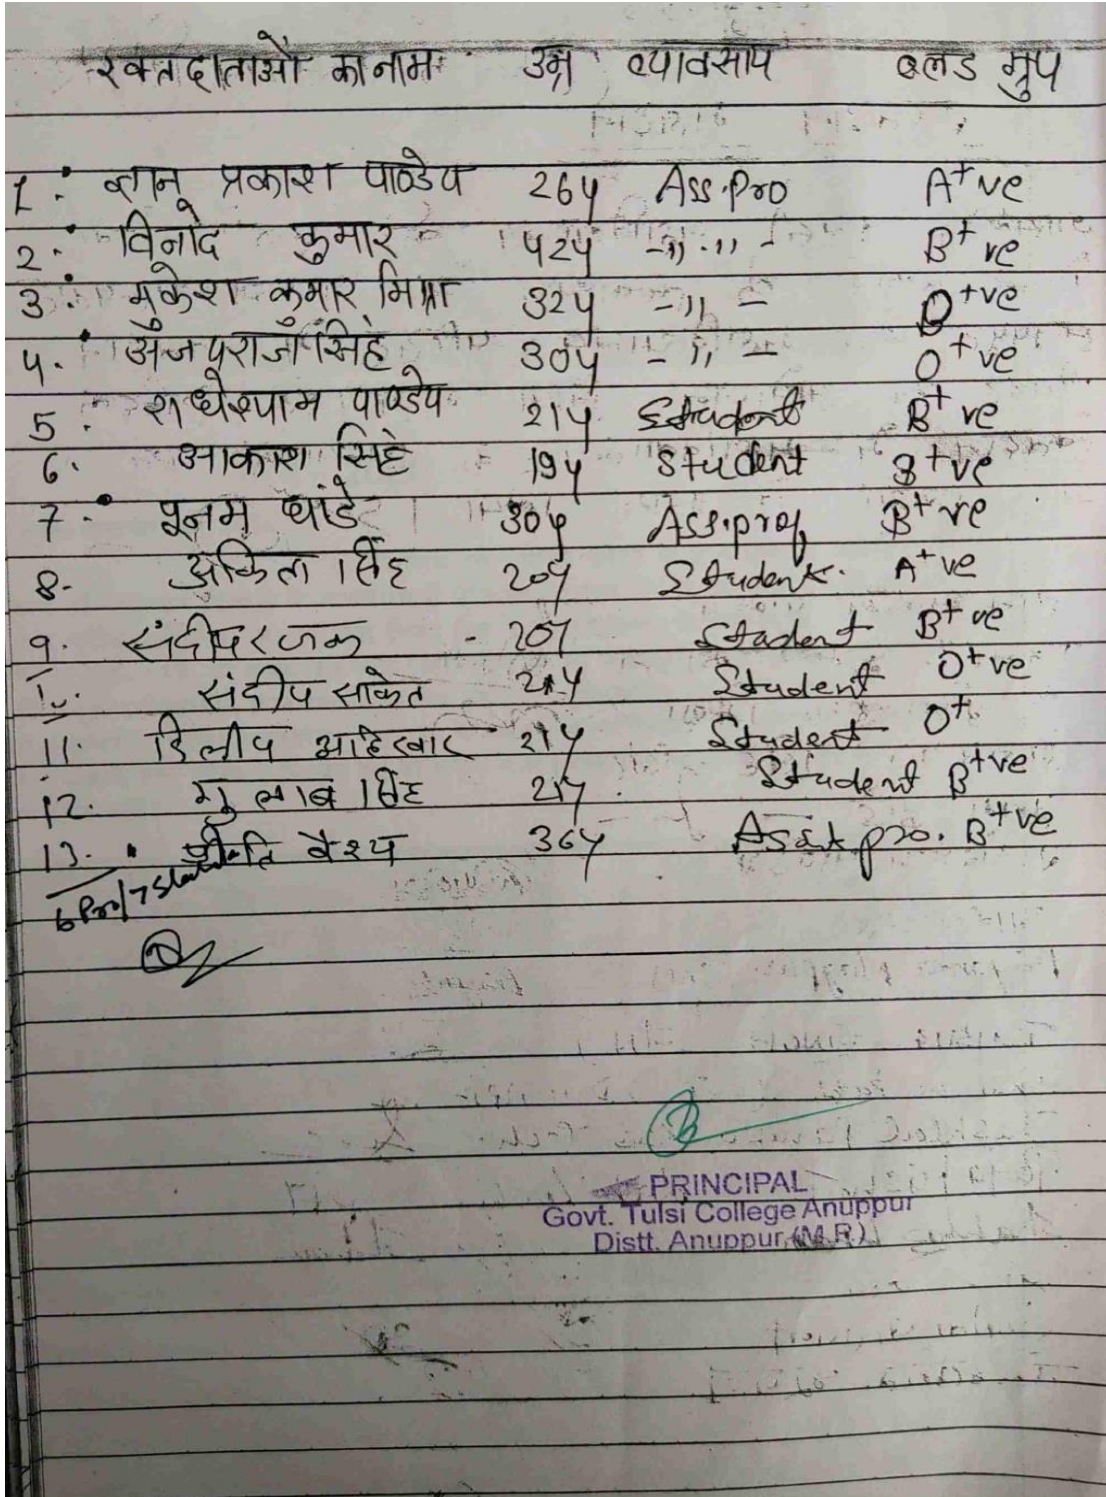 रक्तदाताओं का नाम उम्र व्यावसाय ब्लड ग्रुप
1. ज्ञानू प्रकाश पाण्डेय 26y Ass.Pro A+ve
2. विनोद कुमार 42y -,,-,,- B+ve
3. मुकेश कुमार मिश्रा 32y -,,- O+ve
4. अजयराज सिंह 30y -,,- O+ve
5. राधेश्याम पाण्डेय 21y Student B+ve
6. आकाश सिंह 19y Student B+ve
7. पूनम धांडे 30y Ass.prof B+ve
8- अंकिता सिंह 20y Student. A+ve
9. संदीप रजक - 20y Student B+ve
10 संदीप साकेत 21y Student O+ve
11. दिलीप अहिरवार 21y Student O+
12. गुलाब सिंह 21y. Student B+ve
13. प्रीति वैश्य 36y Asst pro. B+ve
6 Pro/7 Student
PRINCIPAL
Govt. Tulsi College Anuppur
Distt. Anuppur (M.P.)